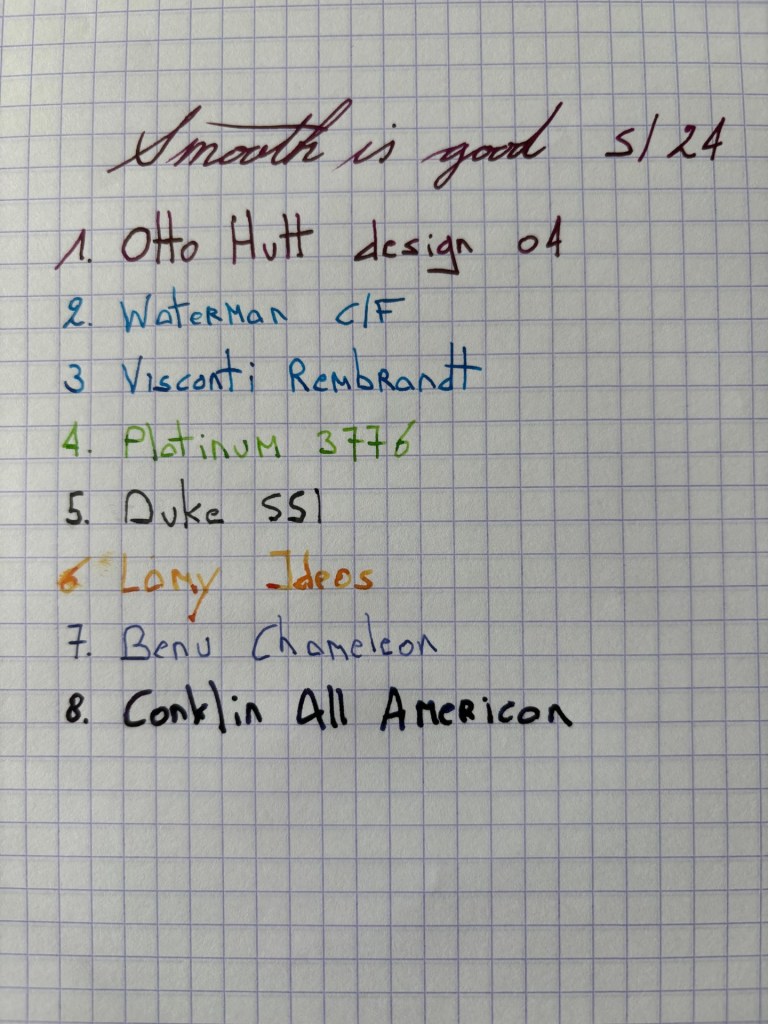 Smooth is good 5/24
1. Otto Hutt design 04
2. Waterman C/F
3 Visconti Rembrandt
4. Platinum 3776
5. Duke 551
6 Lamy Ideos
7. Benu Chameleon
8. Conklin All American